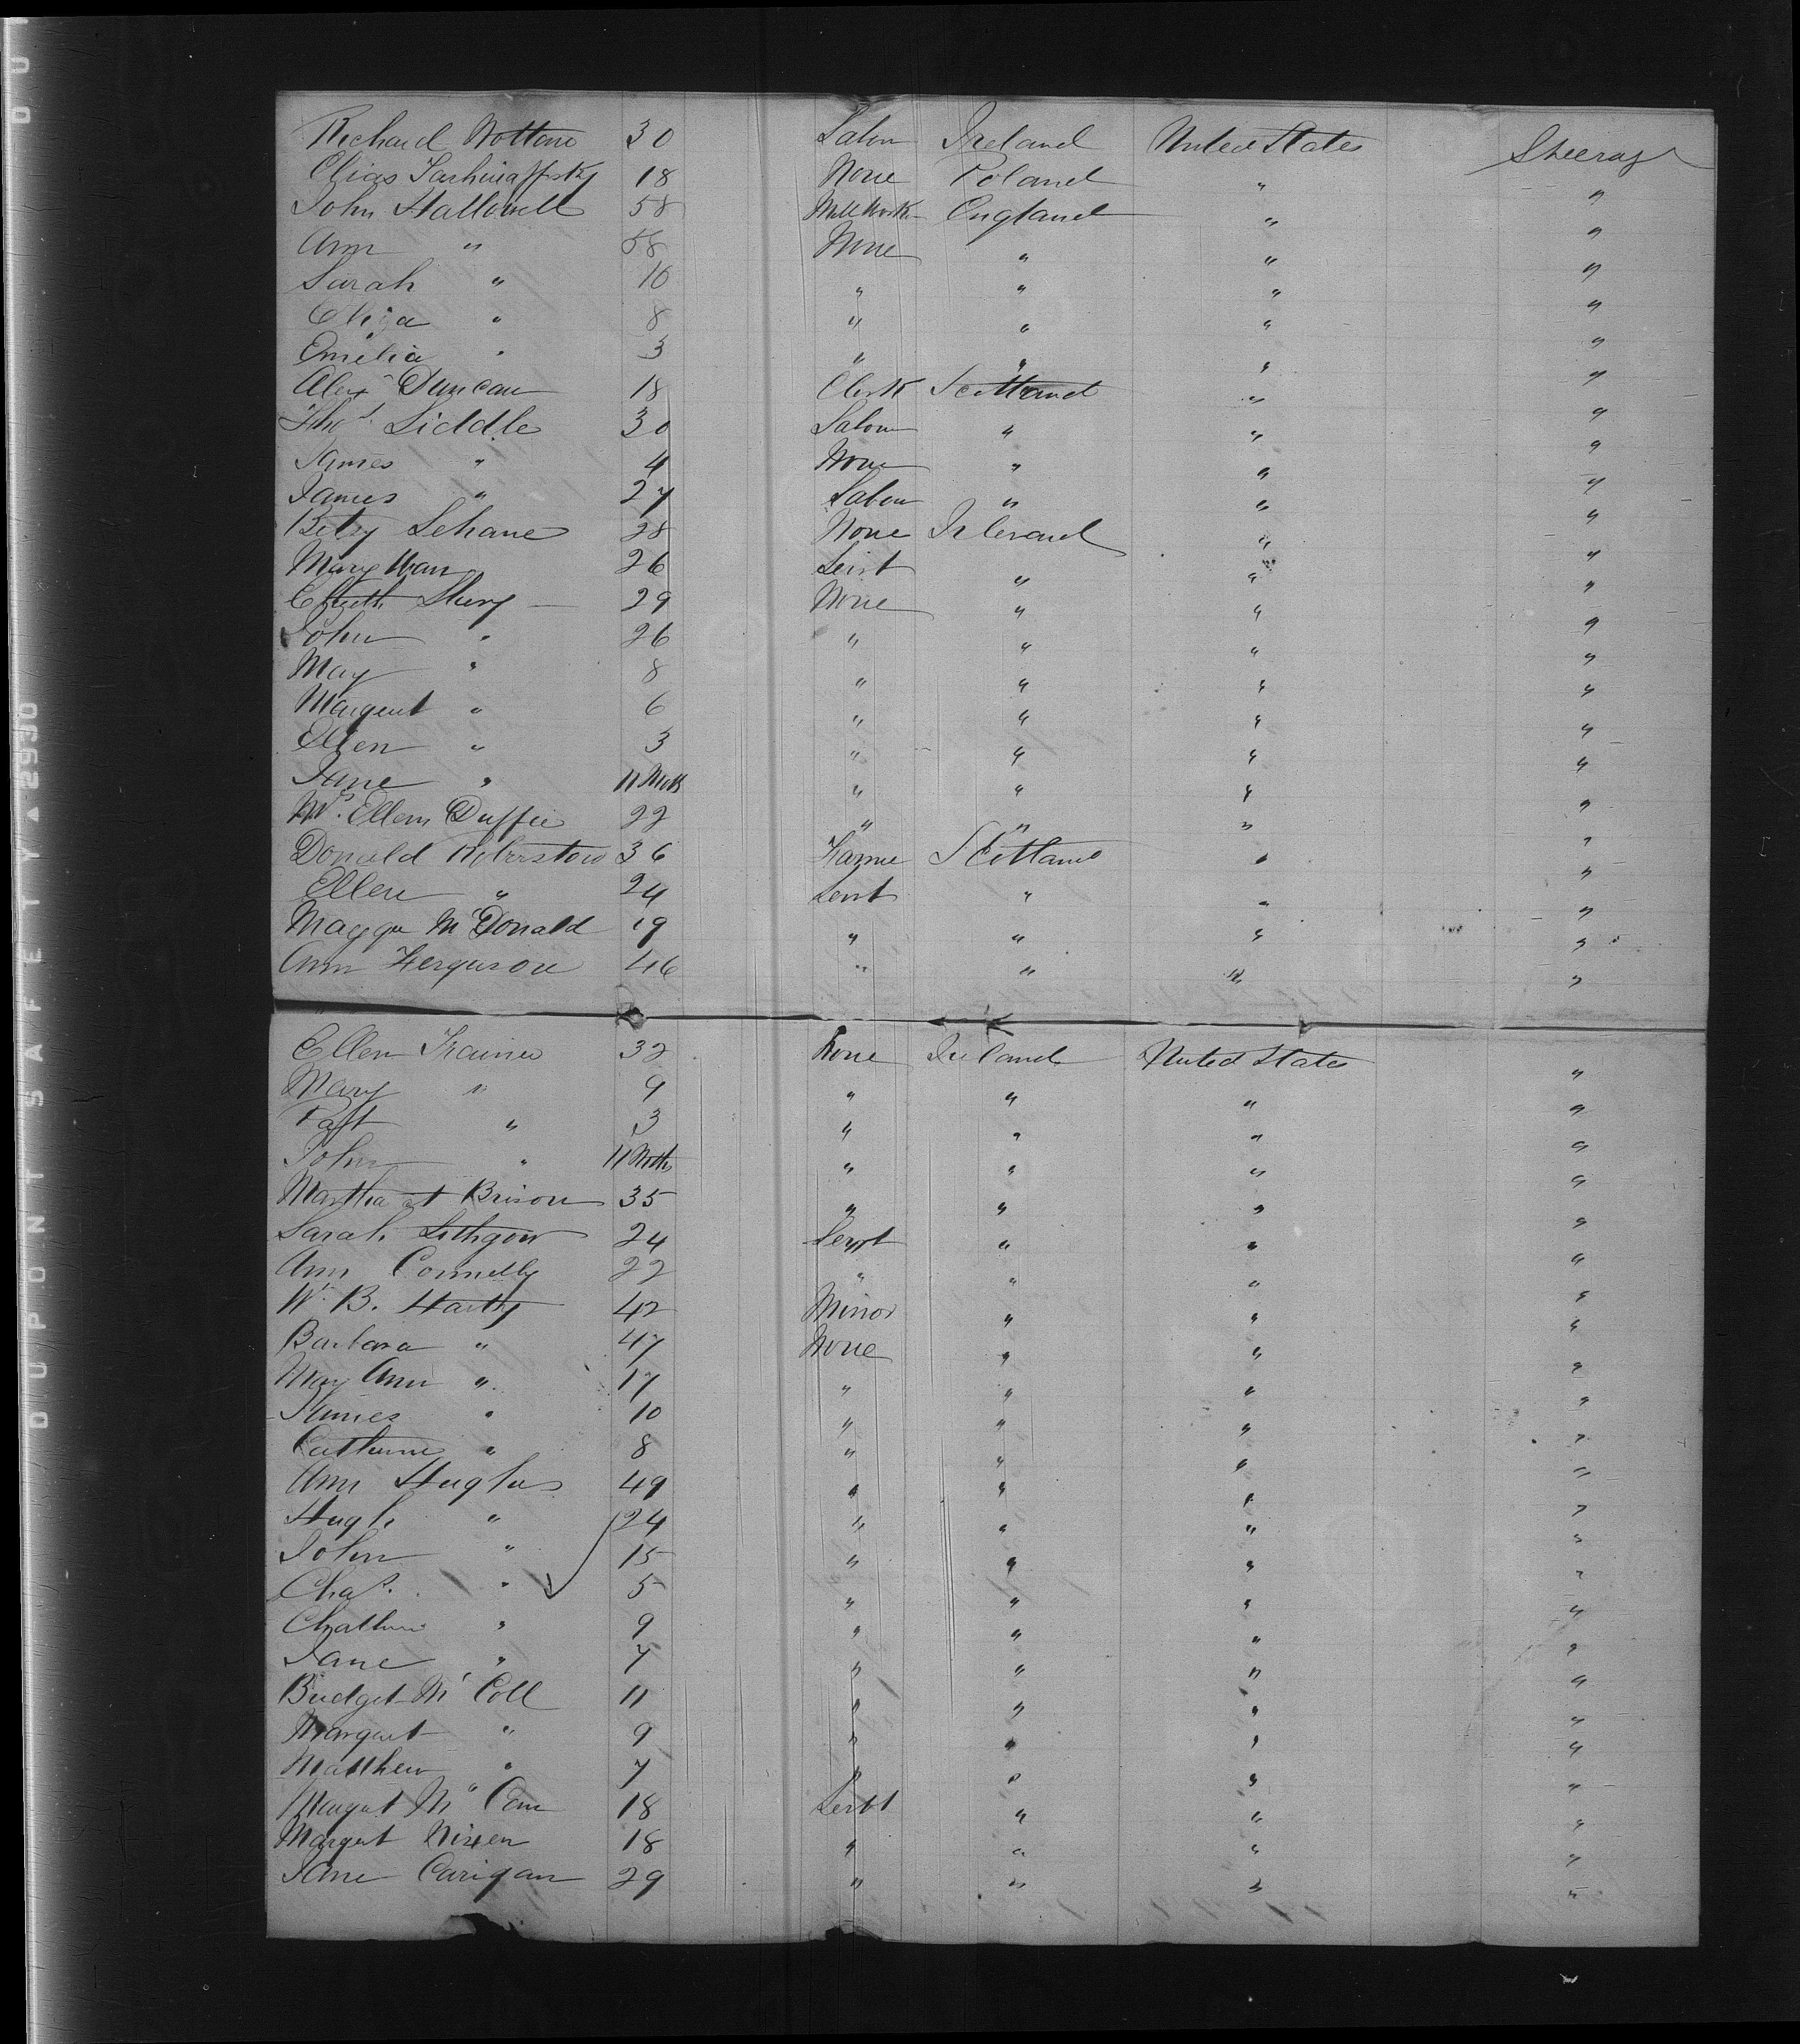 Richard 30 Labou Ireland United States Steerag
Elias 18 None Poland " "
John Hallowell 58 Mill Work England " "
Ann " 58 None " " "
Sarah " 10 " " " "
Eliza " 8 " " " "
Emelia " 3 " " " "
Alexr Duncan 18 Clerk Scotland " "
Thos Liddle 30 Labour " " "
James " 4 None " " "
James " 27 Labour " " "
Betsy Lehane 28 None " "
Mary 26 Servt " " "
29 None " " "
John " 26 " " " "
May " 8 " " " "
Margeret " 6 " " " "
Ellen " 3 " " " "
Jane " 11 Mths " " " "
Mrs. Ellen Duffie 22 " " " "
Donald Roberston 36 Scotland " "
Ellen " 24 Servt " " "
Maggie McDonald 19 " " " "
Ann Ferguson 46 " " " "
Ellen Trainer 32 None Ireland United States "
Mary " 9 " " " "
Patt " 3 " " " "
John " 11 Mths " " " "
Martha Brison 35 " " " "
Sarah Lithgow 24 Servt " " "
Ann Connelly 22 " " " "
Wm. B. Hartly 42 Minor " " "
Barbara " 47 None " " "
May Ann " 17 " " " "
James " 10 " " " "
Catherine " 8 " " " "
Ann Hughes 49 " " " "
Hugh " 24 " " " "
John " 15 " " " "
Chas. " 5 " " " "
" 9 " " " "
Jane " 7 " " " "
Bridget Mc Coll 11 " " " "
Margaret " 9 " " " "
Matthew " 7 " " " "
Margaret Mc 18 Servt " " "
Margaret Nixen 18 " " " "
Jane Carigan 29 " " " "
DUPONT SAFETY ▲ 2930
DU